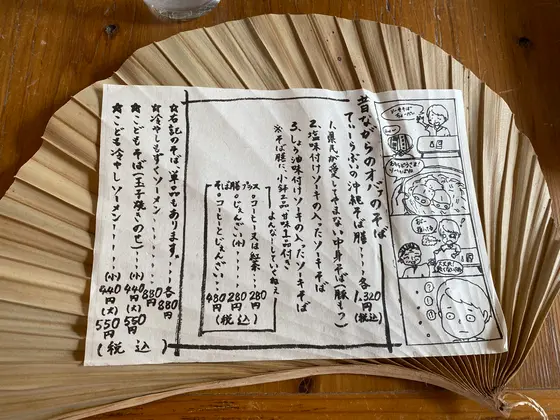 昔ながらのオバアのそば
てぃーらぶいの沖縄そば膳・・・各1,320円(税込)
1、県民が愛してやまない中身そば(豚もつ)
2、塩味付けソーキの入ったソーキそば
3、しょう油味付けソーキの入ったソーキそば
※そば膳に、小鉢三品、甘味一品付き
そば膳プラス
◦コーヒー又は紅茶・・・280円
◦じぇんざい(小)・・・・280円
◦コーヒーとじぇんざい・・・480円
(税込)
☆右記のそば、単品もあります。・・・各880円
☆冷やしもずくソーメン・・・・880円
☆こどもそば(玉子焼きのせ)・・(小)440円(大)550円
☆こども冷やしソーメン・・・・(小)440円(大)550円
(税込)